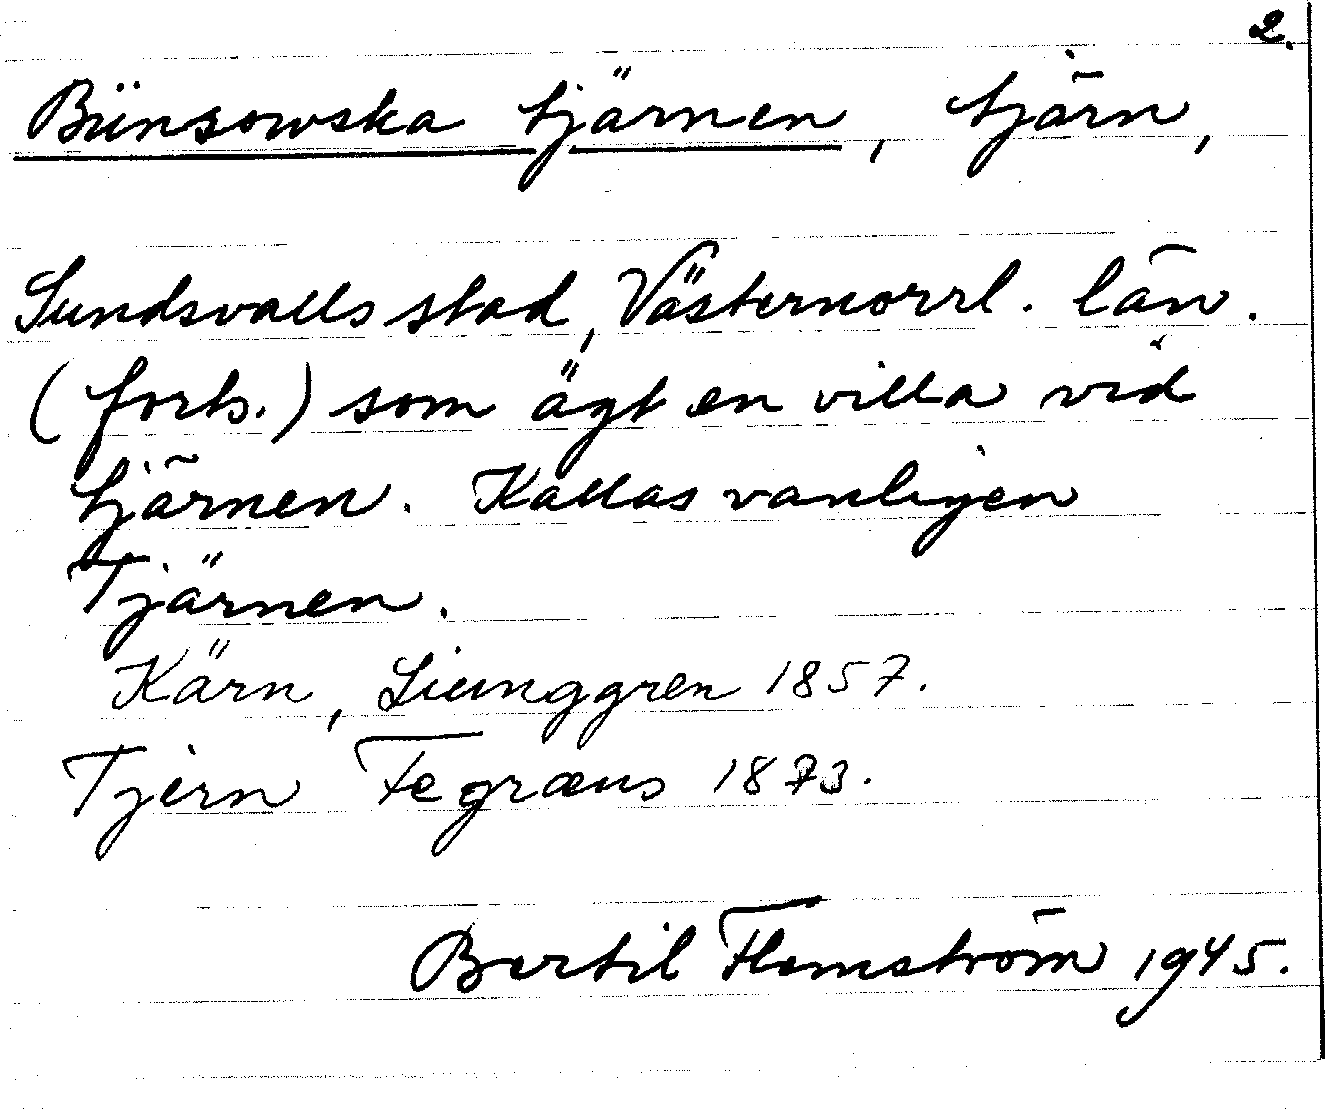 2.
Bünsowska tjärnen, tjärn,
Sundsvalls stad, Västernorrl. län.
(forts.) som ägt en villa vid
tjärnen. Kallas vanligen
Tjärnen.
Kärn, Liunggren 1857.
Tjern Fegræus 1873.
Bertil Flemström 1945.